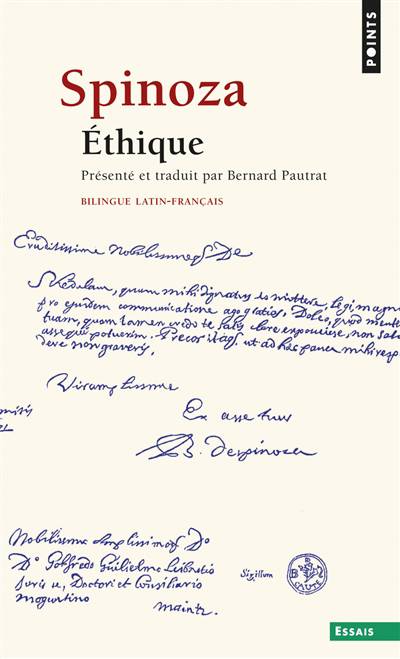 POINTS
Spinoza
Éthique
Présenté et traduit par Bernard Pautrat
BILINGUE LATIN-FRANÇAIS
Eruditissime Nobilissimeq De
Schedulam, quam mihi dignatus es mittere, legi, magna
pro ejusdem communicatione ago gratias, Doleo, quod mente
tuam, quam tamen credo te satis clare exposuisse, non sat
assequi potuerim. Precor itaq ut ad hæc pauca mihi resp
dere non graveris,
Vir amplissime
mitis
Ex asse tuus
B. despinoza
Nobilissimo Amplissimoq Do
Do Gotfredo Guilielmo Leibnitio
Juris u, Doctori et Consiliario
mogurtino
maintz
Sigillum
B
CAUTE
ESSAIS